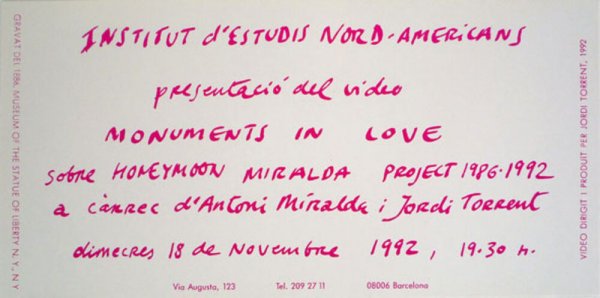 INSTITUT d'ESTUDIS NORD-AMERICANS
presentació del video
MONUMENTS IN LOVE
sobre HONEYMOON MIRALDA PROJECT 1986-1992
a càrrec d'Antoni Miralda i Jordi Torrent
dimecres 18 de Novembre 1992, 19.30 h.
Via Augusta, 123 Tel. 209 27 11 08006 Barcelona
GRAVAT DEL 1886, MUSEUM OF THE STATUE OF LIBERTY N.Y., N.Y
VIDEO DIRIGIT I PRODUIT PER JORDI TORRENT, 1992